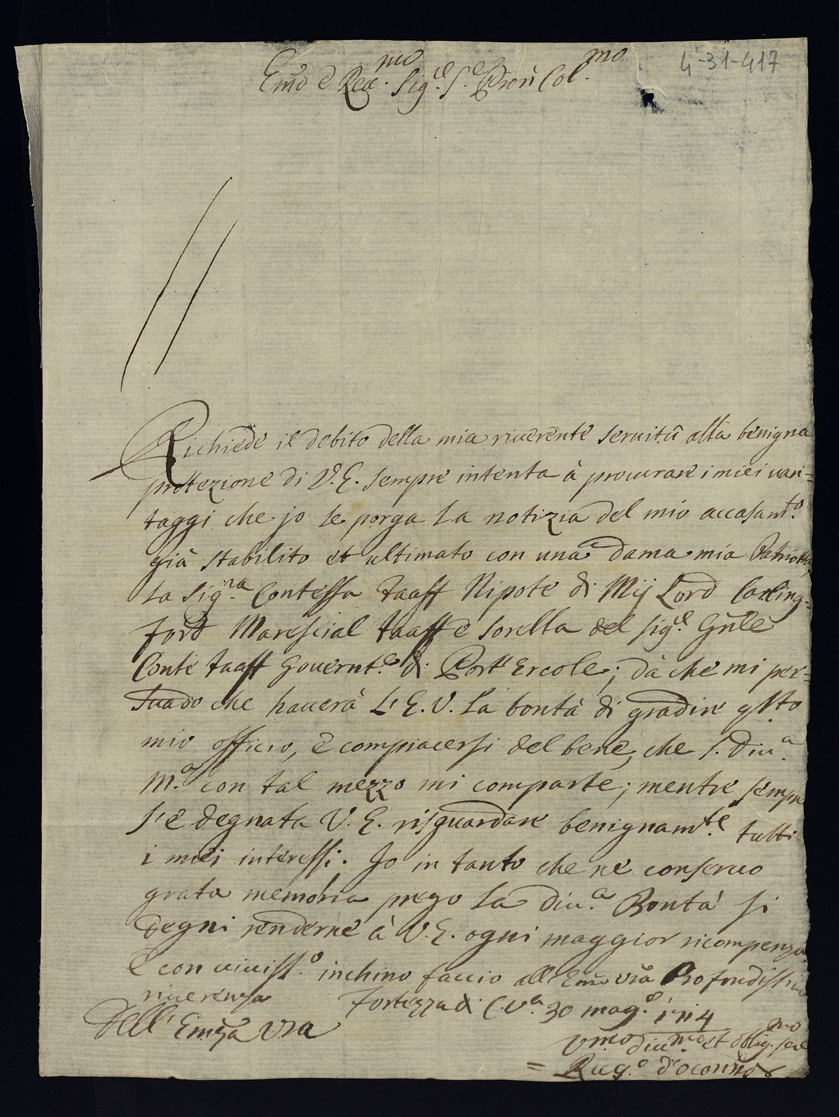 4-31-417
Em̃o e Reu.mo Sig.re S.re Pron Col.mo
Richiede il debito della mia riuerente seruitù alla benigna
protezione di V.E. sempre intenta à procurare i miei uan-
taggi che jo le porga la notizia del mio accasam.to
già stabilito et ultimato con una dama mia Patriotta
la Sig.ra Contessa Taaff Nipote di Mij Lord Carling-
ford Marescial taaff e sorella del sig.re Gnle
Conte taaff Gouernt.e di Port'Ercole; dà che mi per-
suado che hauerà L'E.V. la bontà di gradire qsto
mio officio, e compiacersi del bene, che S. Diu.a
M.a con tal mezzo mi comparte; mentre sempre
s'è degnata V.E. risguardare benignam.te tutti
i miei interessi. Jo in tanto che ne conseruo
grata memoria prego la Diu.a Bontà si
degni renderne à V.E. ogni maggior ricompenza,
e con uiuiss.o inchino faccio all'Em̃a vrã Profondissima
riuerenza
Fortezza di C.Va. 30 mag.o 1714
Dell'Emza Vra
Vmo diumo et obblig.mo
= Rug.o d'oconnor